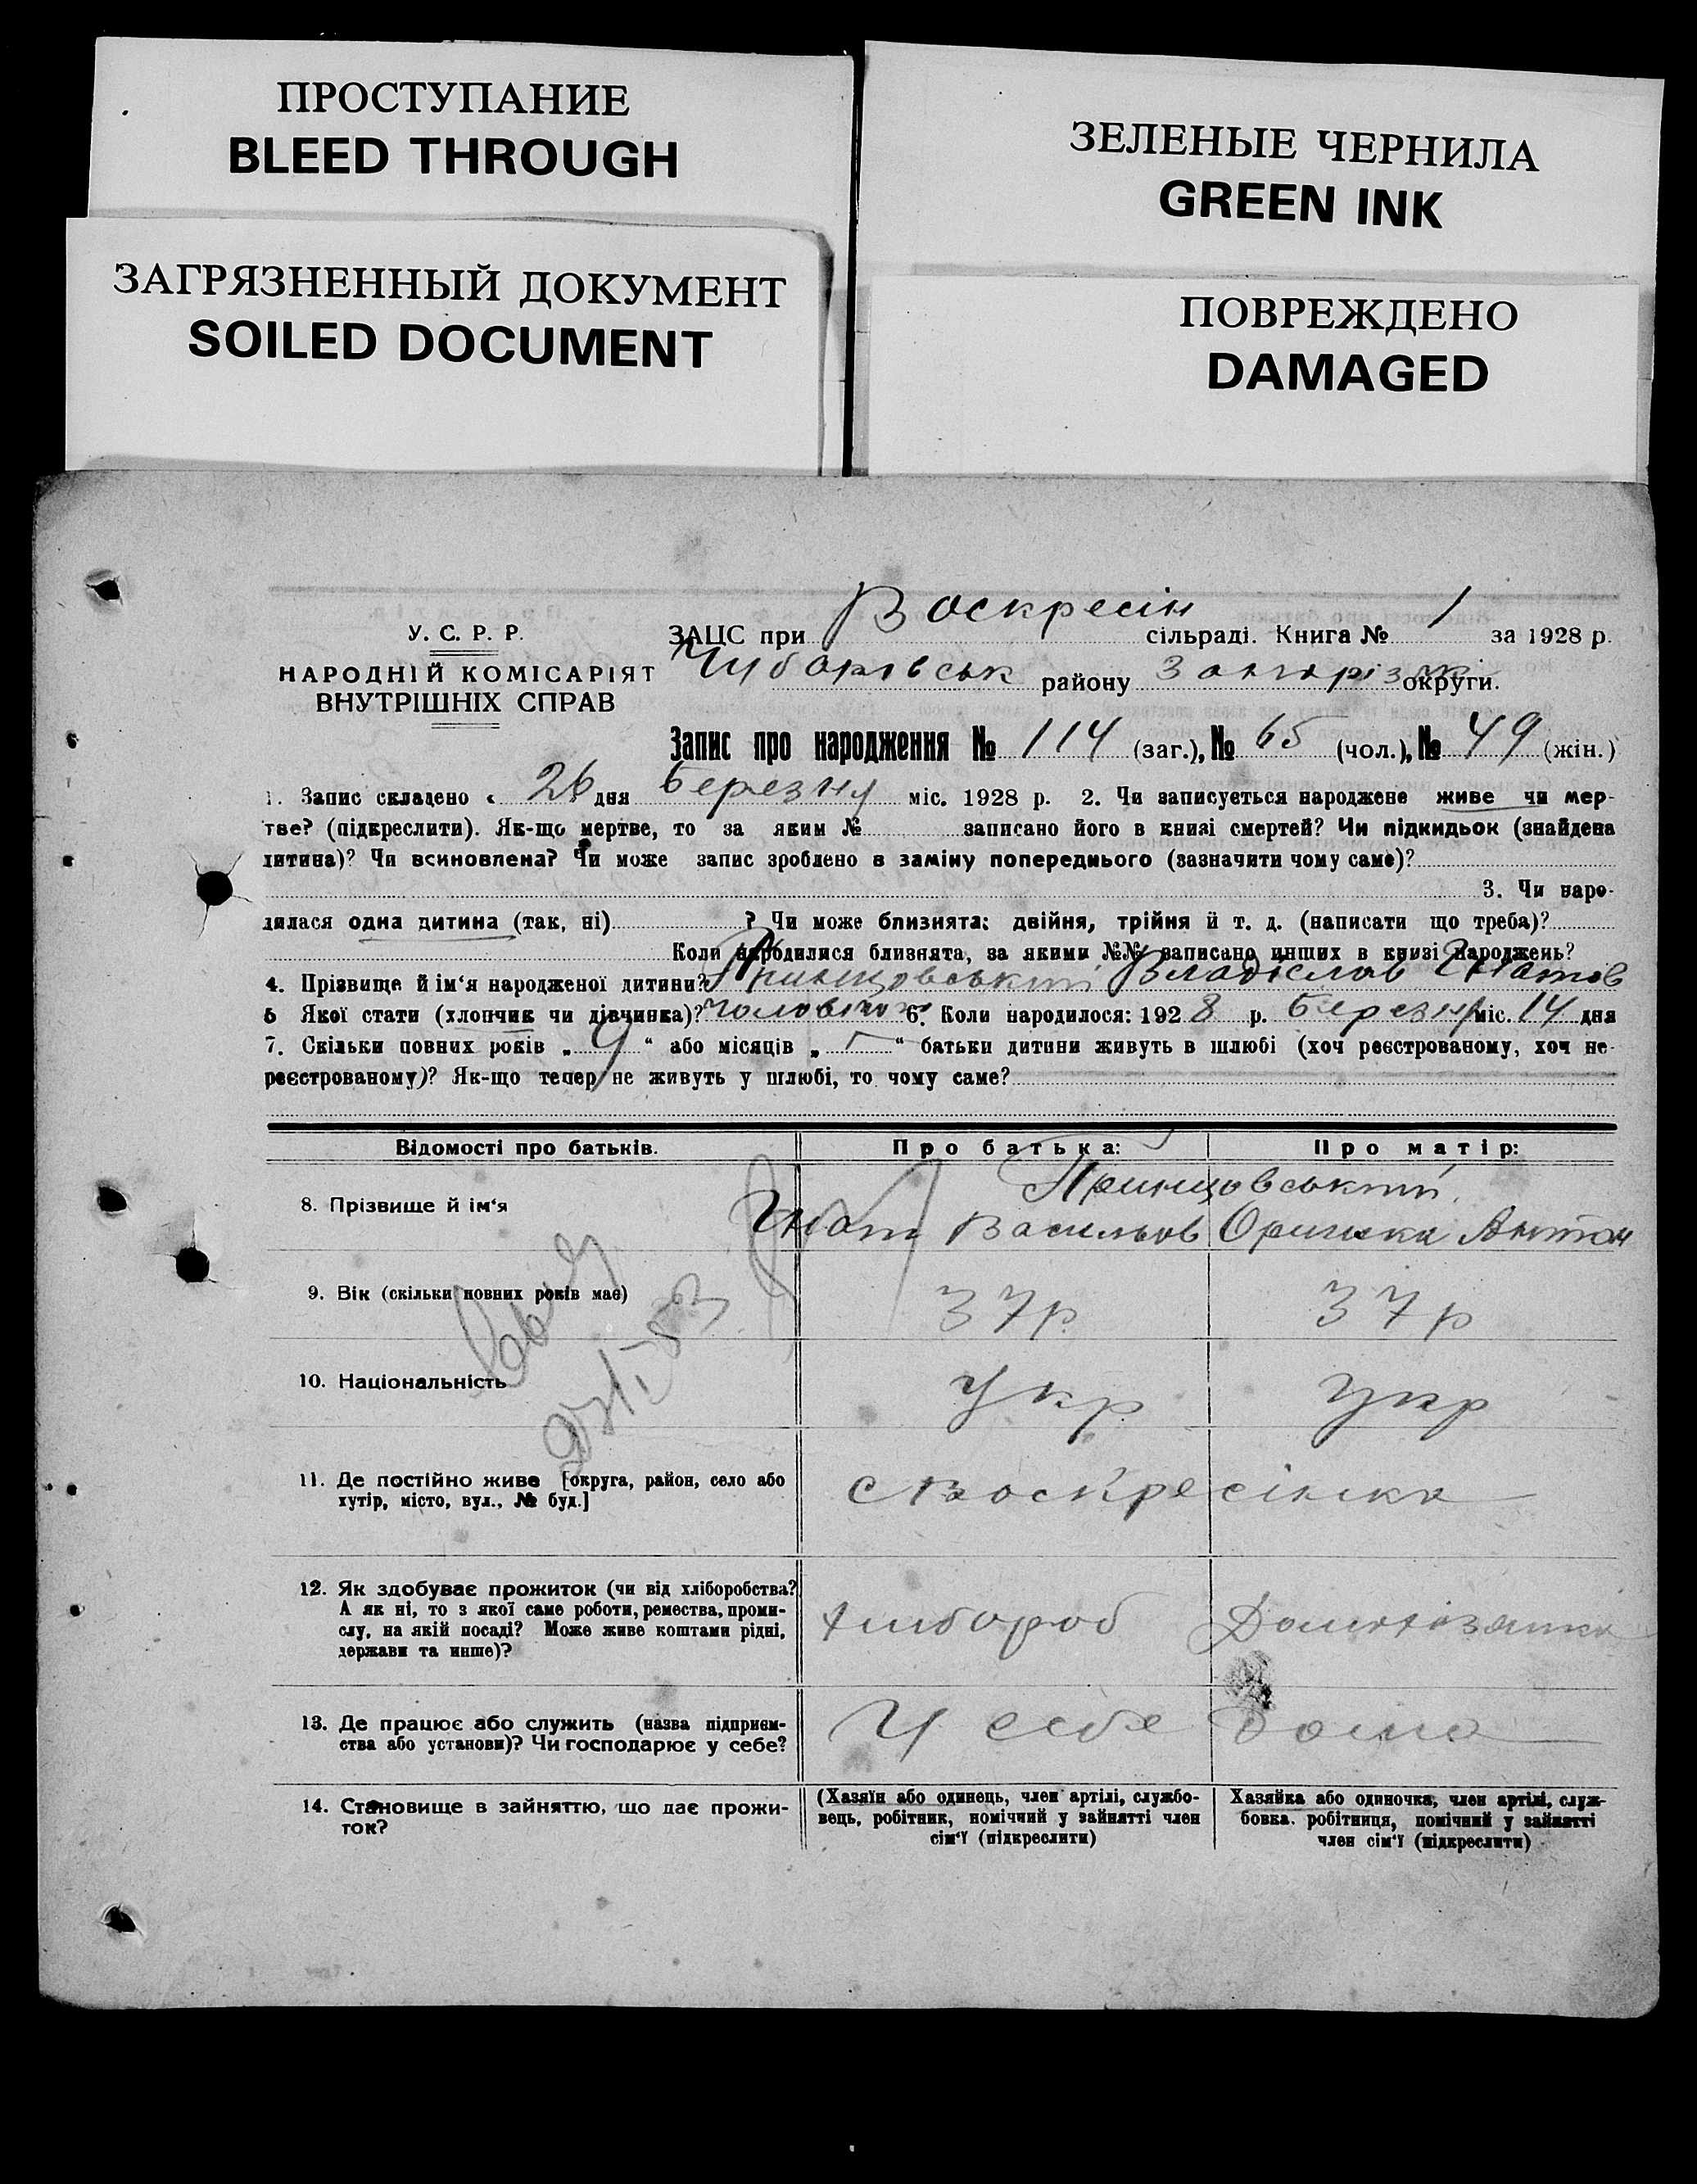 ПРОСТУПАНИЕ
BLEED THROUGH
ЗЕЛЕНЫЕ ЧЕРНИЛА
GREEN INK
ЗАГРЯЗНЕННЫЙ ДОКУМЕНТ
SOILED DOCUMENT
ПОВРЕЖДЕНО
DAMAGED
У. С. Р. Р.
НАРОДНІЙ КОМІСАРІЯТ
ВНУТРІШНІХ СПРАВ
ЗАЦС при Воскресін сільраді. Книга № 1 за 1928 р.
Чубарівськ району Запоріз округи.
Запис про народження № 114 (заг.), № 65 (чол.), № 49 (жін.)
1. Запис складено « 26 дня березня міс. 1928 р. 2. Чи записується народжене живе чи мер-
тве? (підкреслити). Як-що мертве, то за яким № записано його в книзі смертей? Чи підкидьок (знайдена
дитина)? Чи всиновлена? Чи може запис зроблено в заміну попереднього (зазначити чому саме)?
3. Чи наро-
дилася одна дитина (так, ні) ? Чи може близнята: двійня, трійня й т. д. (написати що треба)?
Коли народилися близнята, за якими №№ записано инших в книзі народжень?
4. Прізвище й ім'я народженої дитини? Принцовський Владіслав Гнатов
5 Якої стати (хлопчик чи дівчинка)? чоловічої 6. Коли народилося: 1928 р. березня міс. 14 дня
7. Скільки повних років „ 9 “ або місяців „ – “ батьки дитини живуть в шлюбі (хоч реєстрованому, хоч не-
реєстрованому)? Як-що тепер не живуть у шлюбі, то чому саме?
Відомості про батьків. Про батька: Про матір:
8. Прізвище й ім'я Принцовський
Гнат Васильов Оришка Антон
9. Вік (скільки повних років має) 37 р 37 р
10. Національність Укр Укр
11. Де постійно живе [округа, район, село або
хутір, місто, вул., № буд.] с Воскресінка
12. Як здобуває прожиток (чи від хліборобства?
А як ні, то з якої саме роботи, ремества, проми-
слу, на якій посаді? Може живе коштами рідні,
держави та инше)? Хлібороб Домохазяйка
13. Де працює або служить (назва підприєм-
ства або установи)? Чи господарює у себе? У себе дома
14. Становище в зайняттю, що дає прожи-
ток?
(Хазяїн або одинець, член артілі, службо-
вець, робітник, помічний у зайнятті член
сім'ї (підкреслити)
Хазяйка або одиночка, член артілі, служ-
бовка. робітниця, помічний у зайнятті
член сім'ї (підкреслити)